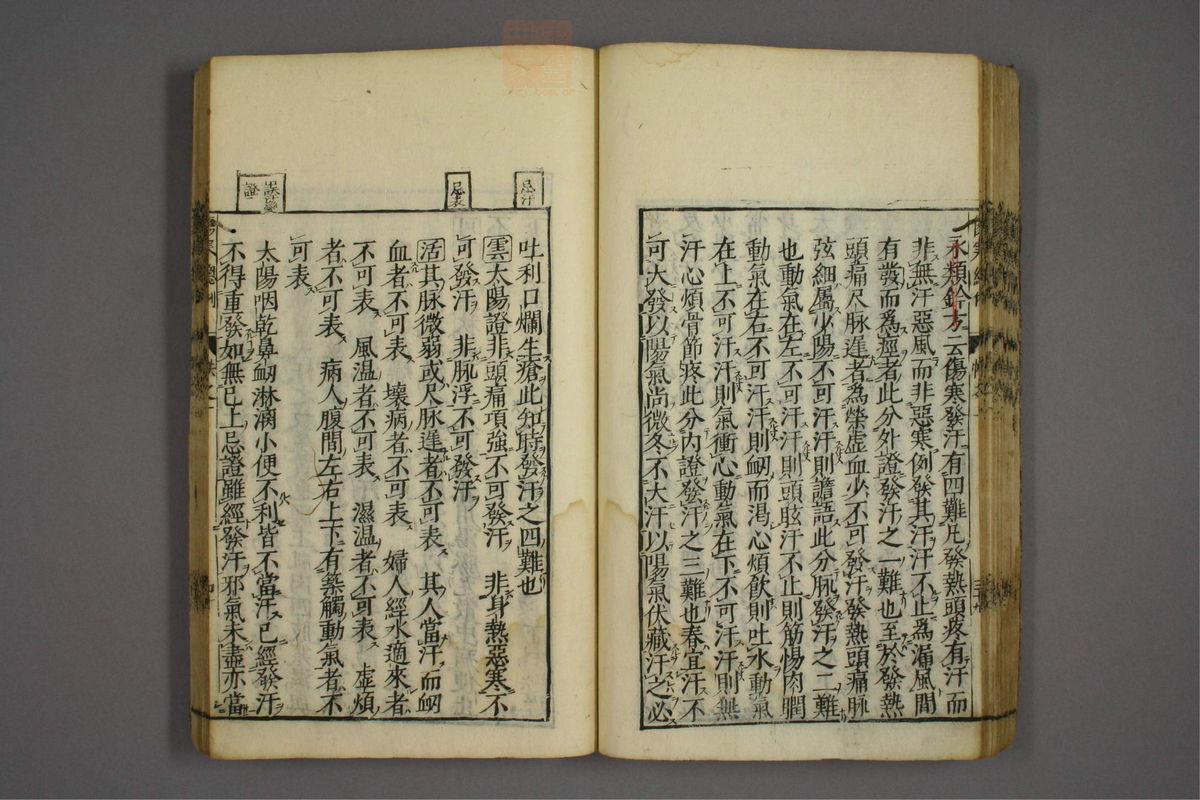 永類鈐方云傷寒發汗有四難凡發熱頭疼有汗而
非無汗惡風而非惡寒例發其汗汗不止為漏風間
有發而為痙者此分外證發汗之一難也至於發熱
頭痛尺脉遲者為榮虚血少不可發汗發熱頭痛脉
弦細屬少陽不可汗汗則譫語此分脉發汗之二難
也動氣在左不可汗汗則頭眩汗不止則筋惕肉瞤
動氣在右不可汗汗則衂而渇心煩飲則吐水動氣
在上不可汗汗則氣衝心動氣在下不可汗汗則無
汗心煩骨節疼此分内證發汗之三難也春宜汗不
可大發以陽氣尚微冬不大汗以陽氣伏藏汗之必
忌汗
吐利口爛生瘡此知時發汗之四難也
雲太陽證非頭痛項強不可發汗 非身熱惡寒不
忌表
可發汗 非脉浮不可發汗
活其脉微弱或尺脉遲者不可表 其人當汗而衂
血者不可表 壞病者不可表 婦人經水適來者
不可表 風温者不可表 濕温者不可表 虚煩
者不可表 病人腹間左右上下有築觸動氣者不
可表
誤汗變
證
太陽咽乾鼻衂淋漓小便不利皆不當汗已經發汗
不得重發如無已上忌證雖經發汗邪氣未盡亦當